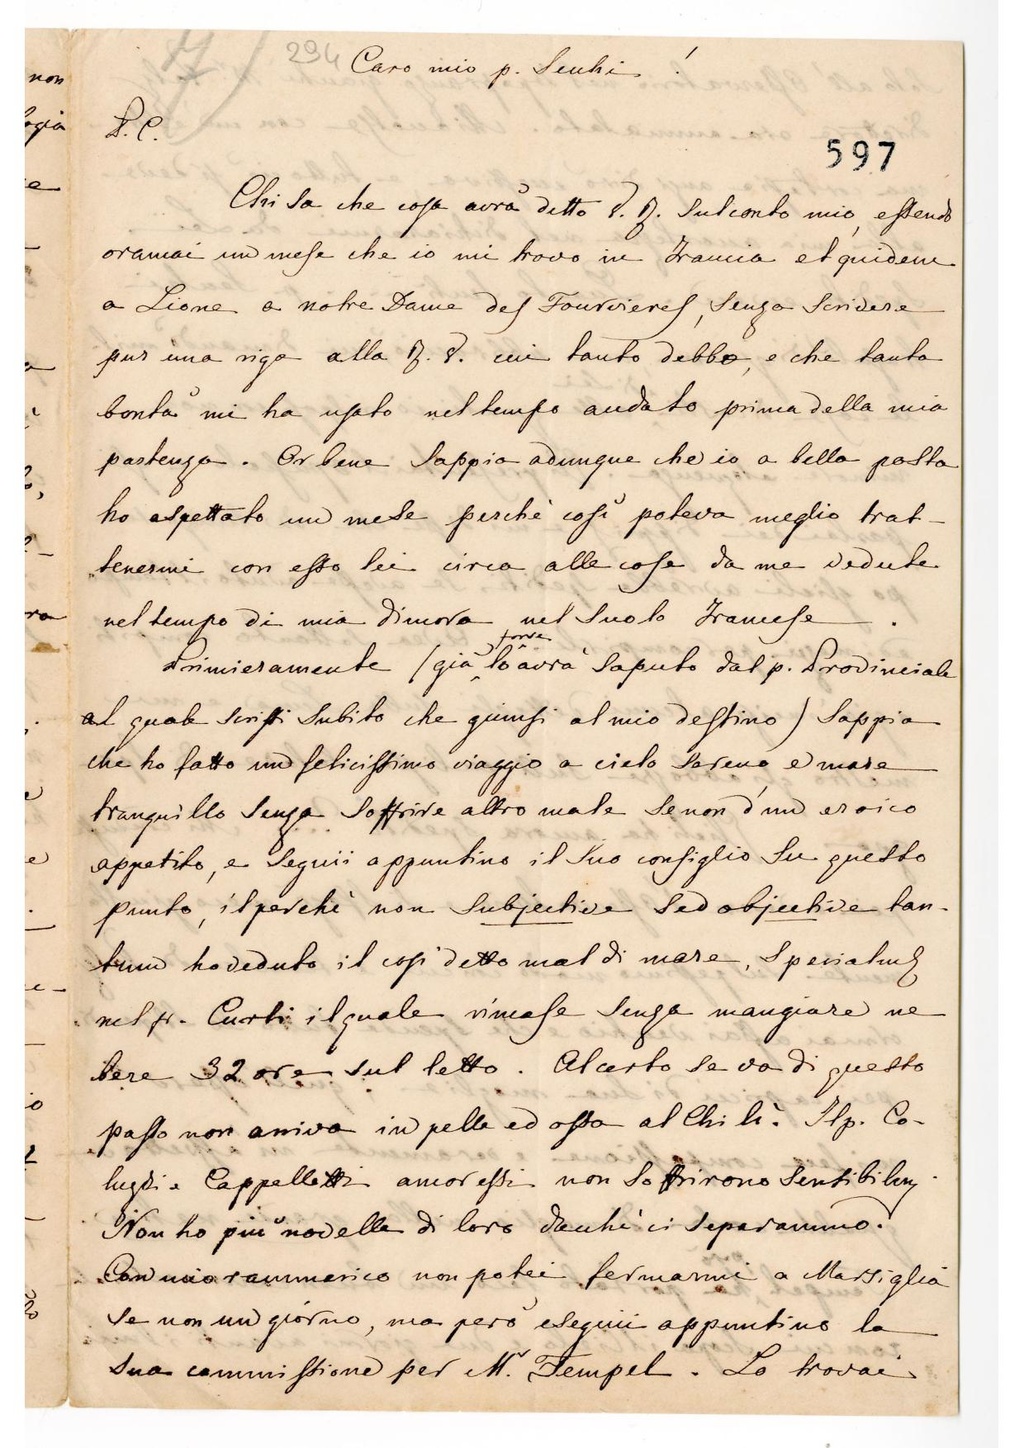 294 Caro mio p. Secchi !
P. C.
597
Chi sa che cosa avrà detto V. R. sul conto mio, essendo
oramai un mese che io mi trovo in Francia et quidem
a Lione a notre Dame des Fourvieres, senza scrivere
pur una riga alla R. V. cui tanto debbo, e che tanta
bontà mi ha usato nel tempo andato prima della mia
partenza. Or bene sappia adunque che io a bella posta
ho aspettato un mese perchè così poteva meglio trat-
tenermi con esso lei circa alle cose da me vedute
nel tempo di mia dimora nel suolo Francese.
Primieramente (già lo forse avrà saputo dal p. Provinciale
al quale scrissi subito che giunsi al mio destino) sappia
che ho fatto un felicissimo viaggio a cielo sereno e mare
tranquillo senza soffrire altro male se non d'un eroico
appetito, e seguii appuntino il suo consiglio su questo
punto, il perchè non subjective sed objective tan-
tum ho veduto il così detto mal di mare, specialm
nel fr. Curti il quale rimase senza mangiare ne
bere 32 ore sul letto. Al certo se va di questo
passo non arriva in pelle ed ossa al Chilì. Il p. Co-
e Cappelletti amor essi non soffrirono sensibilm.
Non ho più novelle di loro dacchè ci separammo.
Con mio rammarico non potei fermarmi a Marsiglia
se non un giorno, ma però eseguii appuntino la
sua commissione per Mr. Tempel. Lo trovai